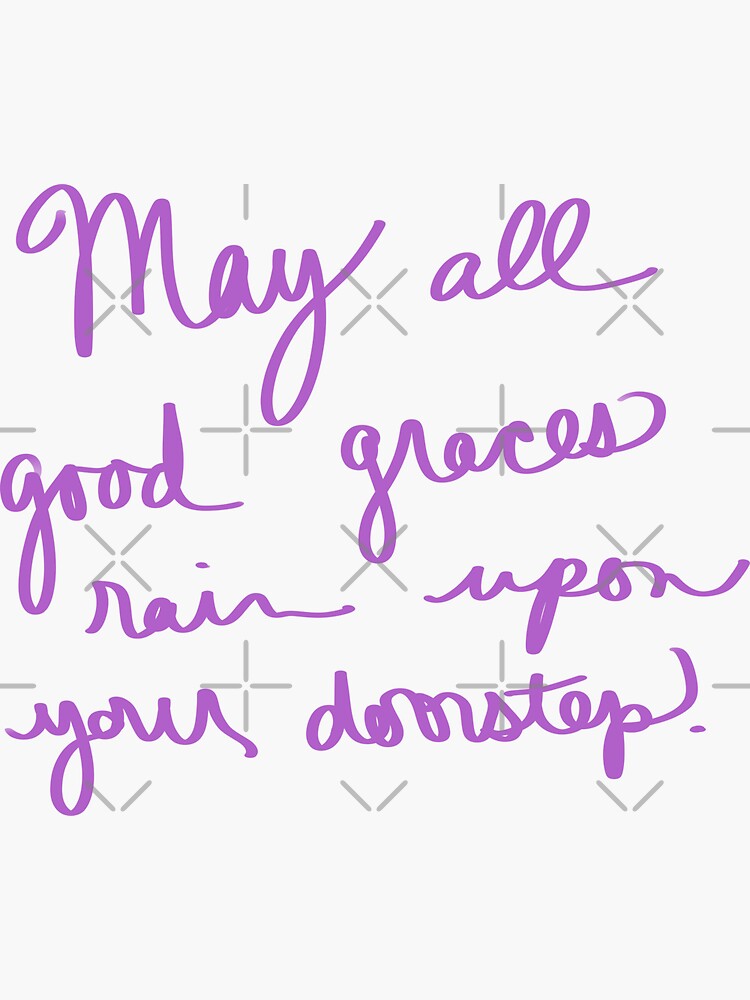 May all
good graces
rain upon
your doorstep.